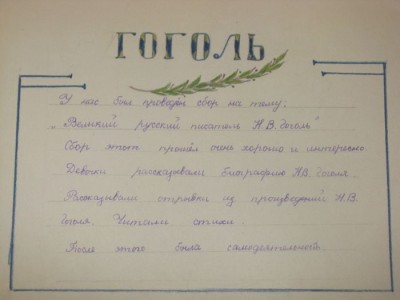 ГОГОЛЬ
У нас был проведён сбор на тему:
„Великий русский писатель Н.В. Гоголь"
Сбор этот прошёл очень хорошо и интересно
Девочки рассказывали биографию Н.В. Гоголя
Рассказывали отрывки из произведений Н.В.
Гоголя. Читали стихи.
После этого была самодеятельность.